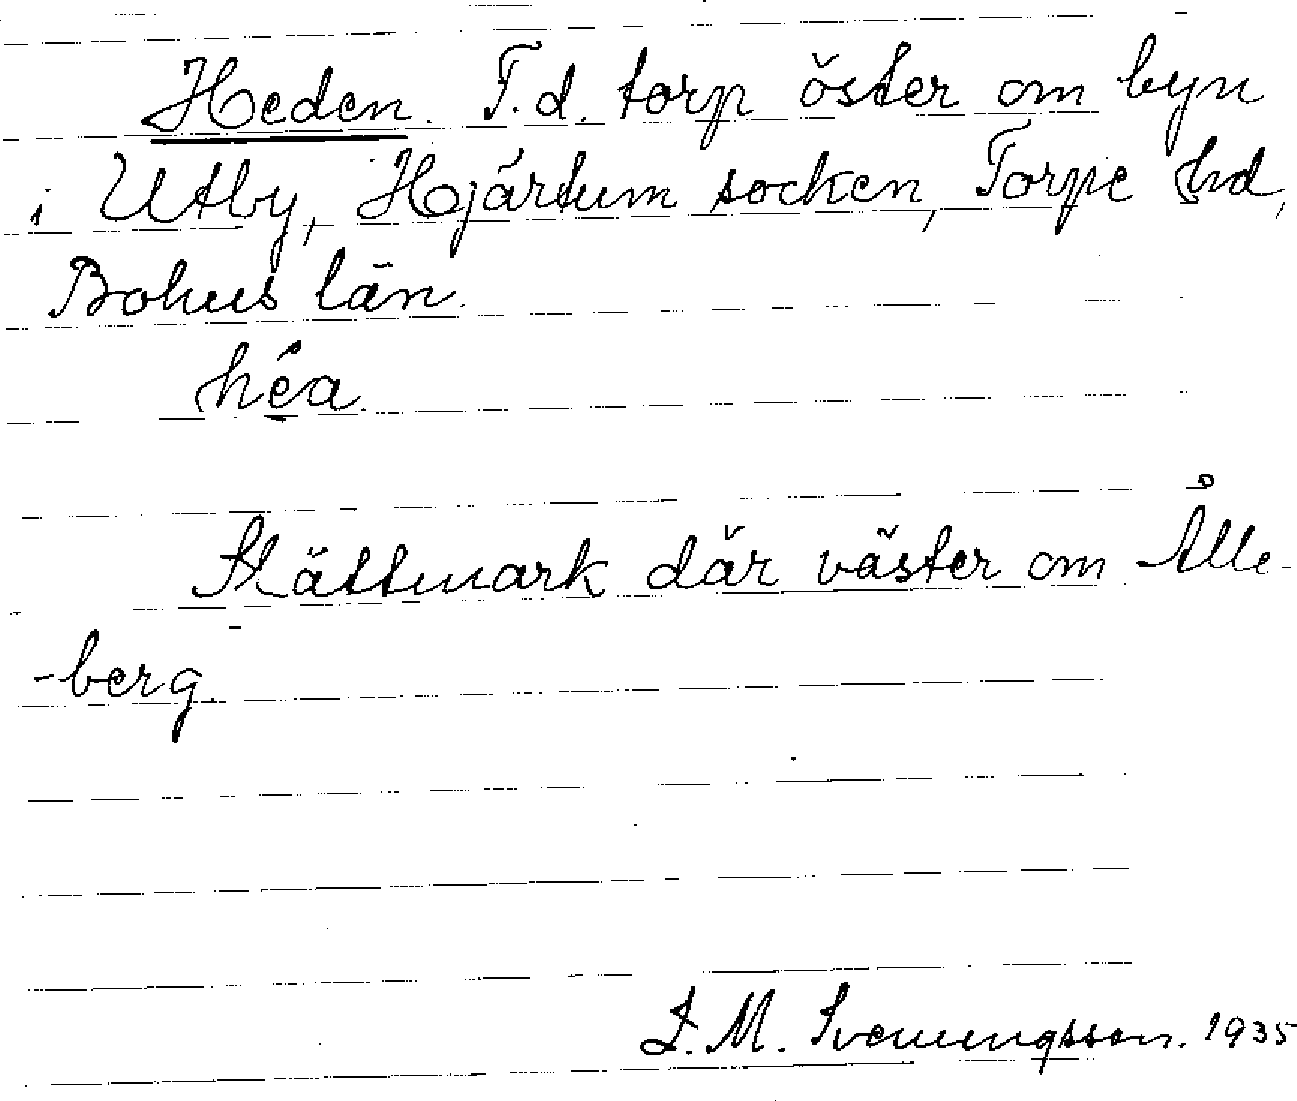 Heden. F.d. torp öster om byn
i Utby, Hjärtum socken, Torpe hd,
Bohus län.
héa
Slättmark där väster om Ålle-
-berg.
J. M. Svenungsson. 1935